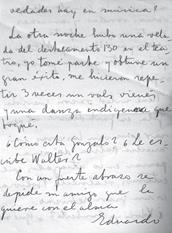 vedades hay en música?
La otra noche hubo una vela
da del destacamento 130 en el tea
tro, yo tomé parte y obtuve un
gran éxito, me hicieron repe
tir 3 veces un vals vienés
y una danza indígena que
toqué.
¿Cómo está Gonzalo? ¿Le es
cribe Walter?
Con un fuerte abrazo se
despide su amigo que la
quiere con el alma
Eduardo